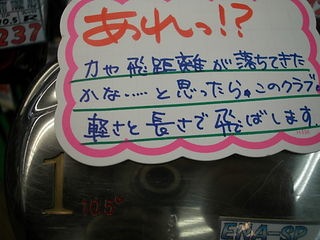 10.5 R
237
あれっ!?
力や飛距離が落ちてきた
かな……と思ったら。このクラブ。
軽さと長さで飛ばします。
1
10.5°
EMA-SP